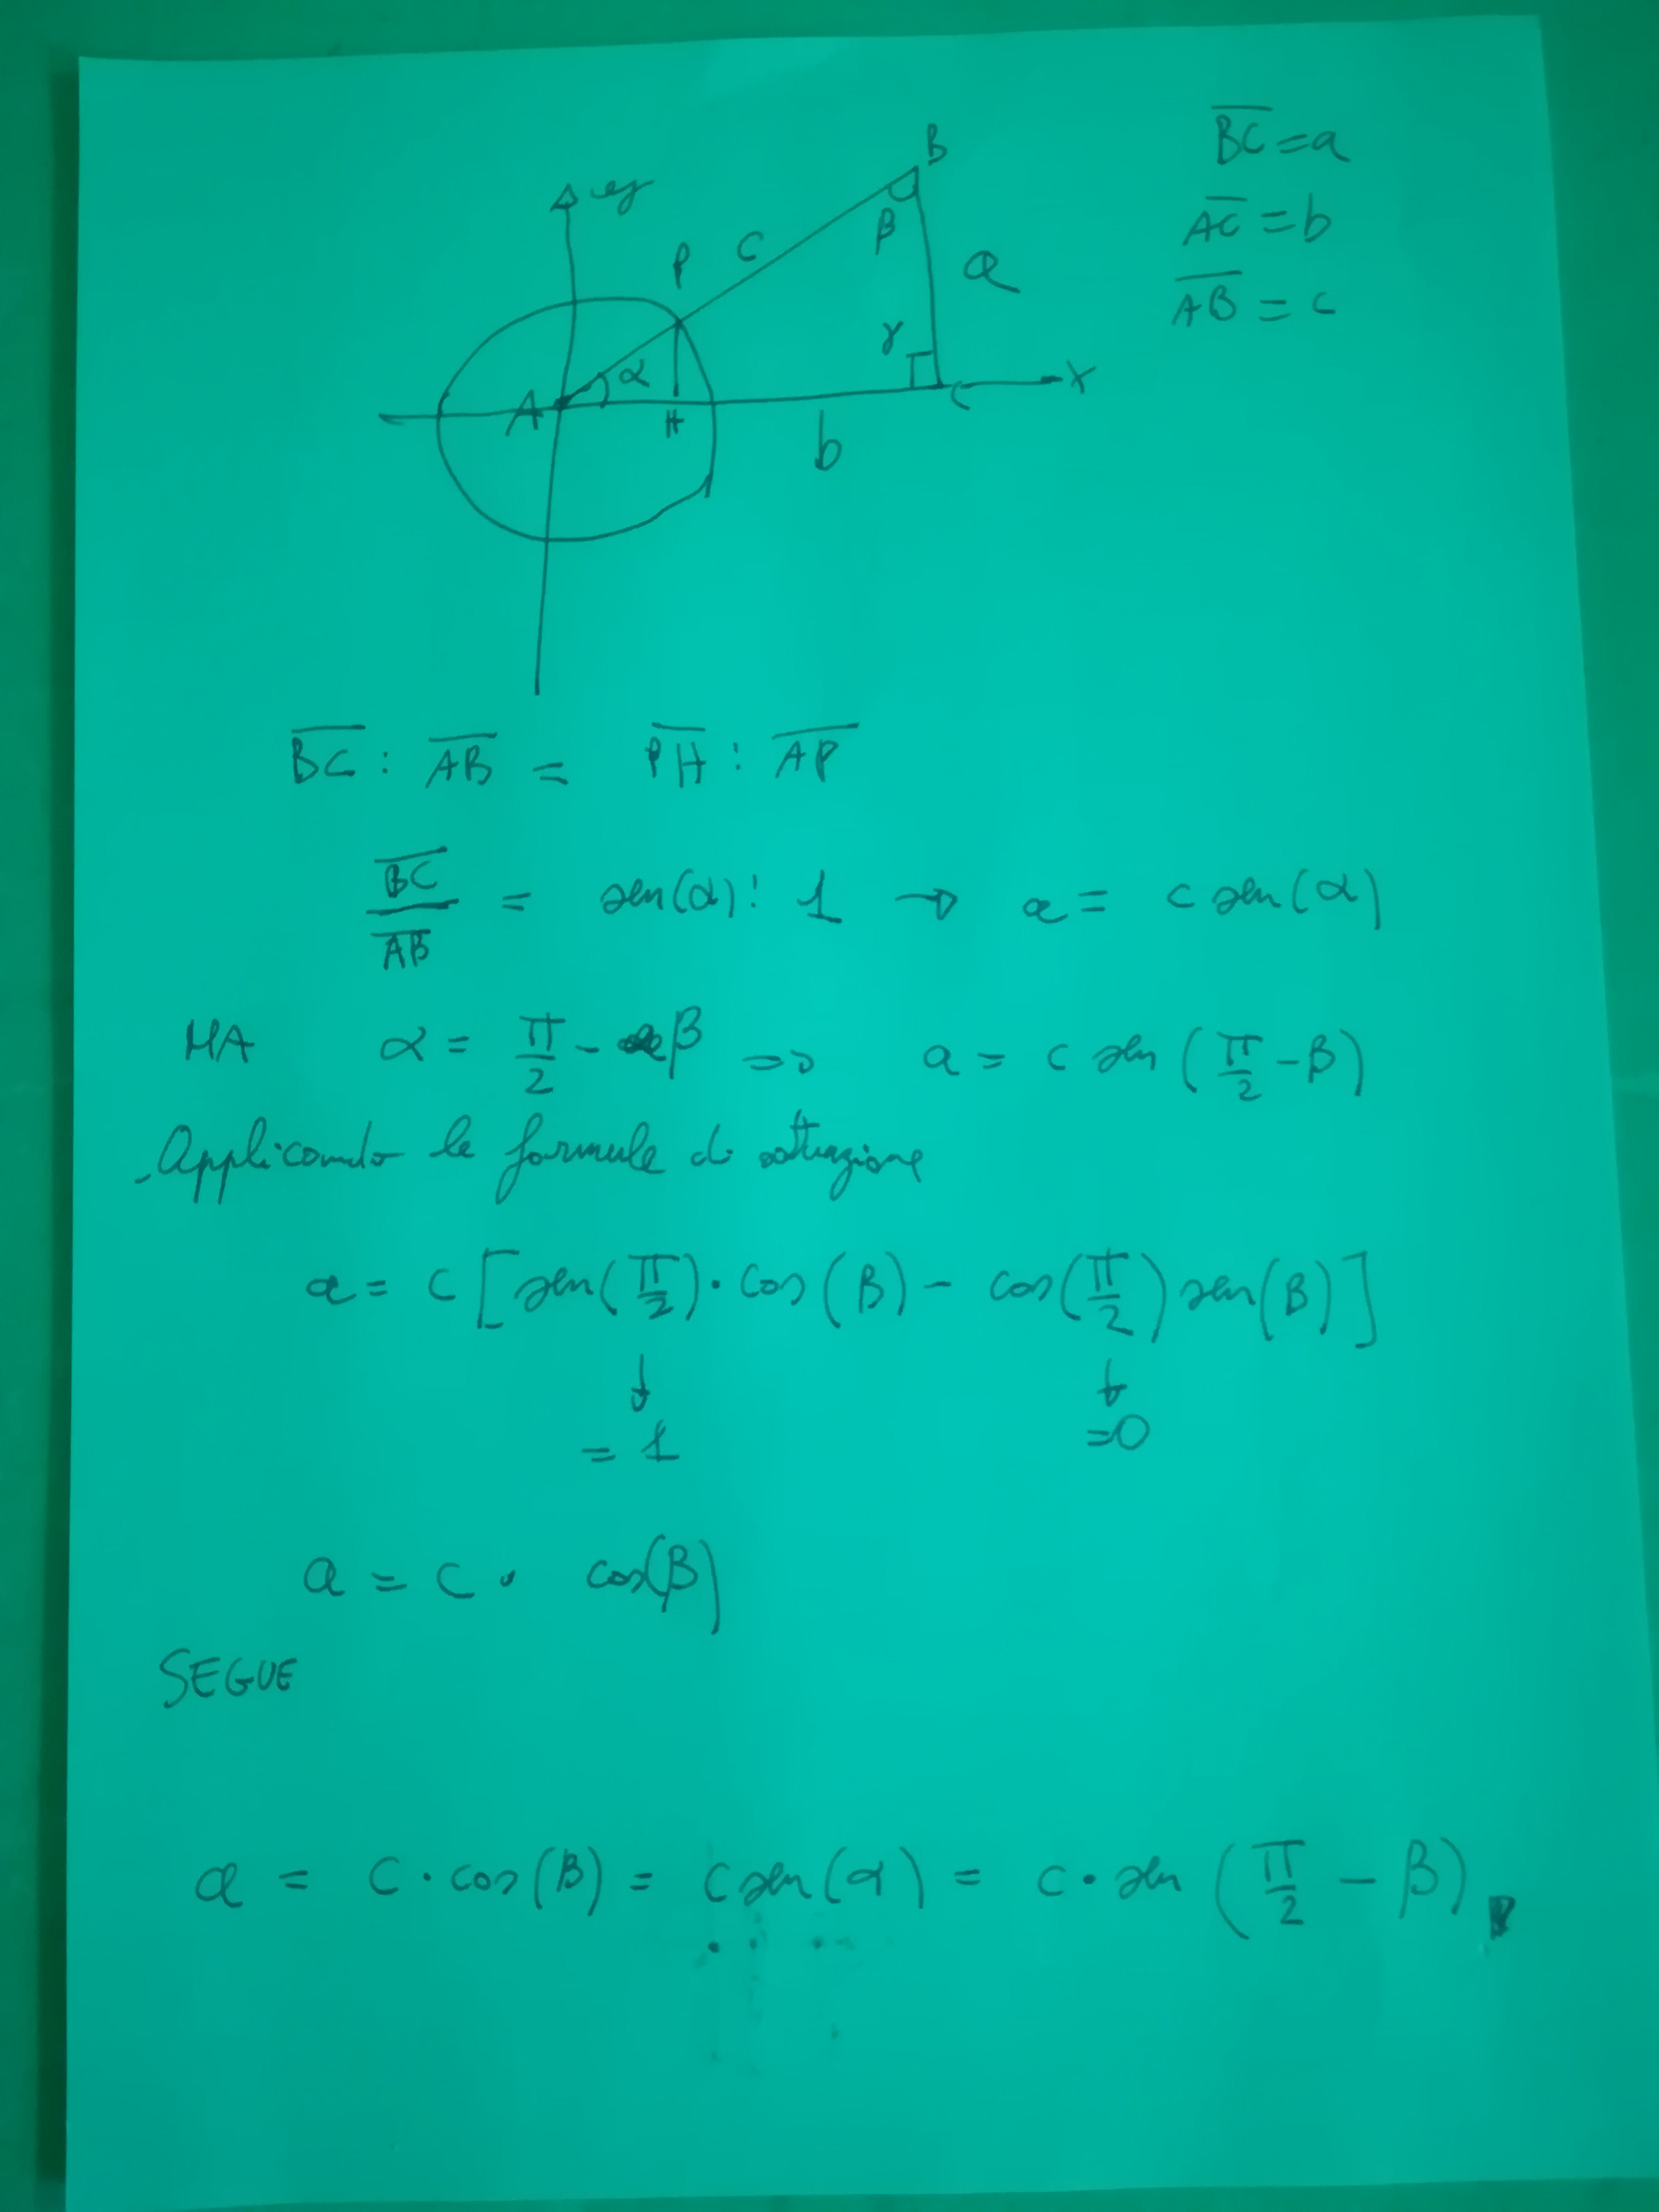 B
y
P
c
β
a
γ
α
A
H
C
x
b
B̅C̅ = a
A̅C̅ = b
A̅B̅ = c
B̅C̅ : A̅B̅ = P̅H̅ : A̅P̅
B̅C̅ / A̅B̅ = sen(α) : 1 → a = c sen(α)
MA α = π/2 - β => a = c sen (π/2 - β)
Applicando le formule di sottrazione
a = c [sen(π/2) · cos(β) - cos(π/2) sen(β)]
↓ ↓
= 1 =0
a = c · cos(β)
SEGUE
a = c · cos(β) = c sen(α) = c · sen (π/2 - β)